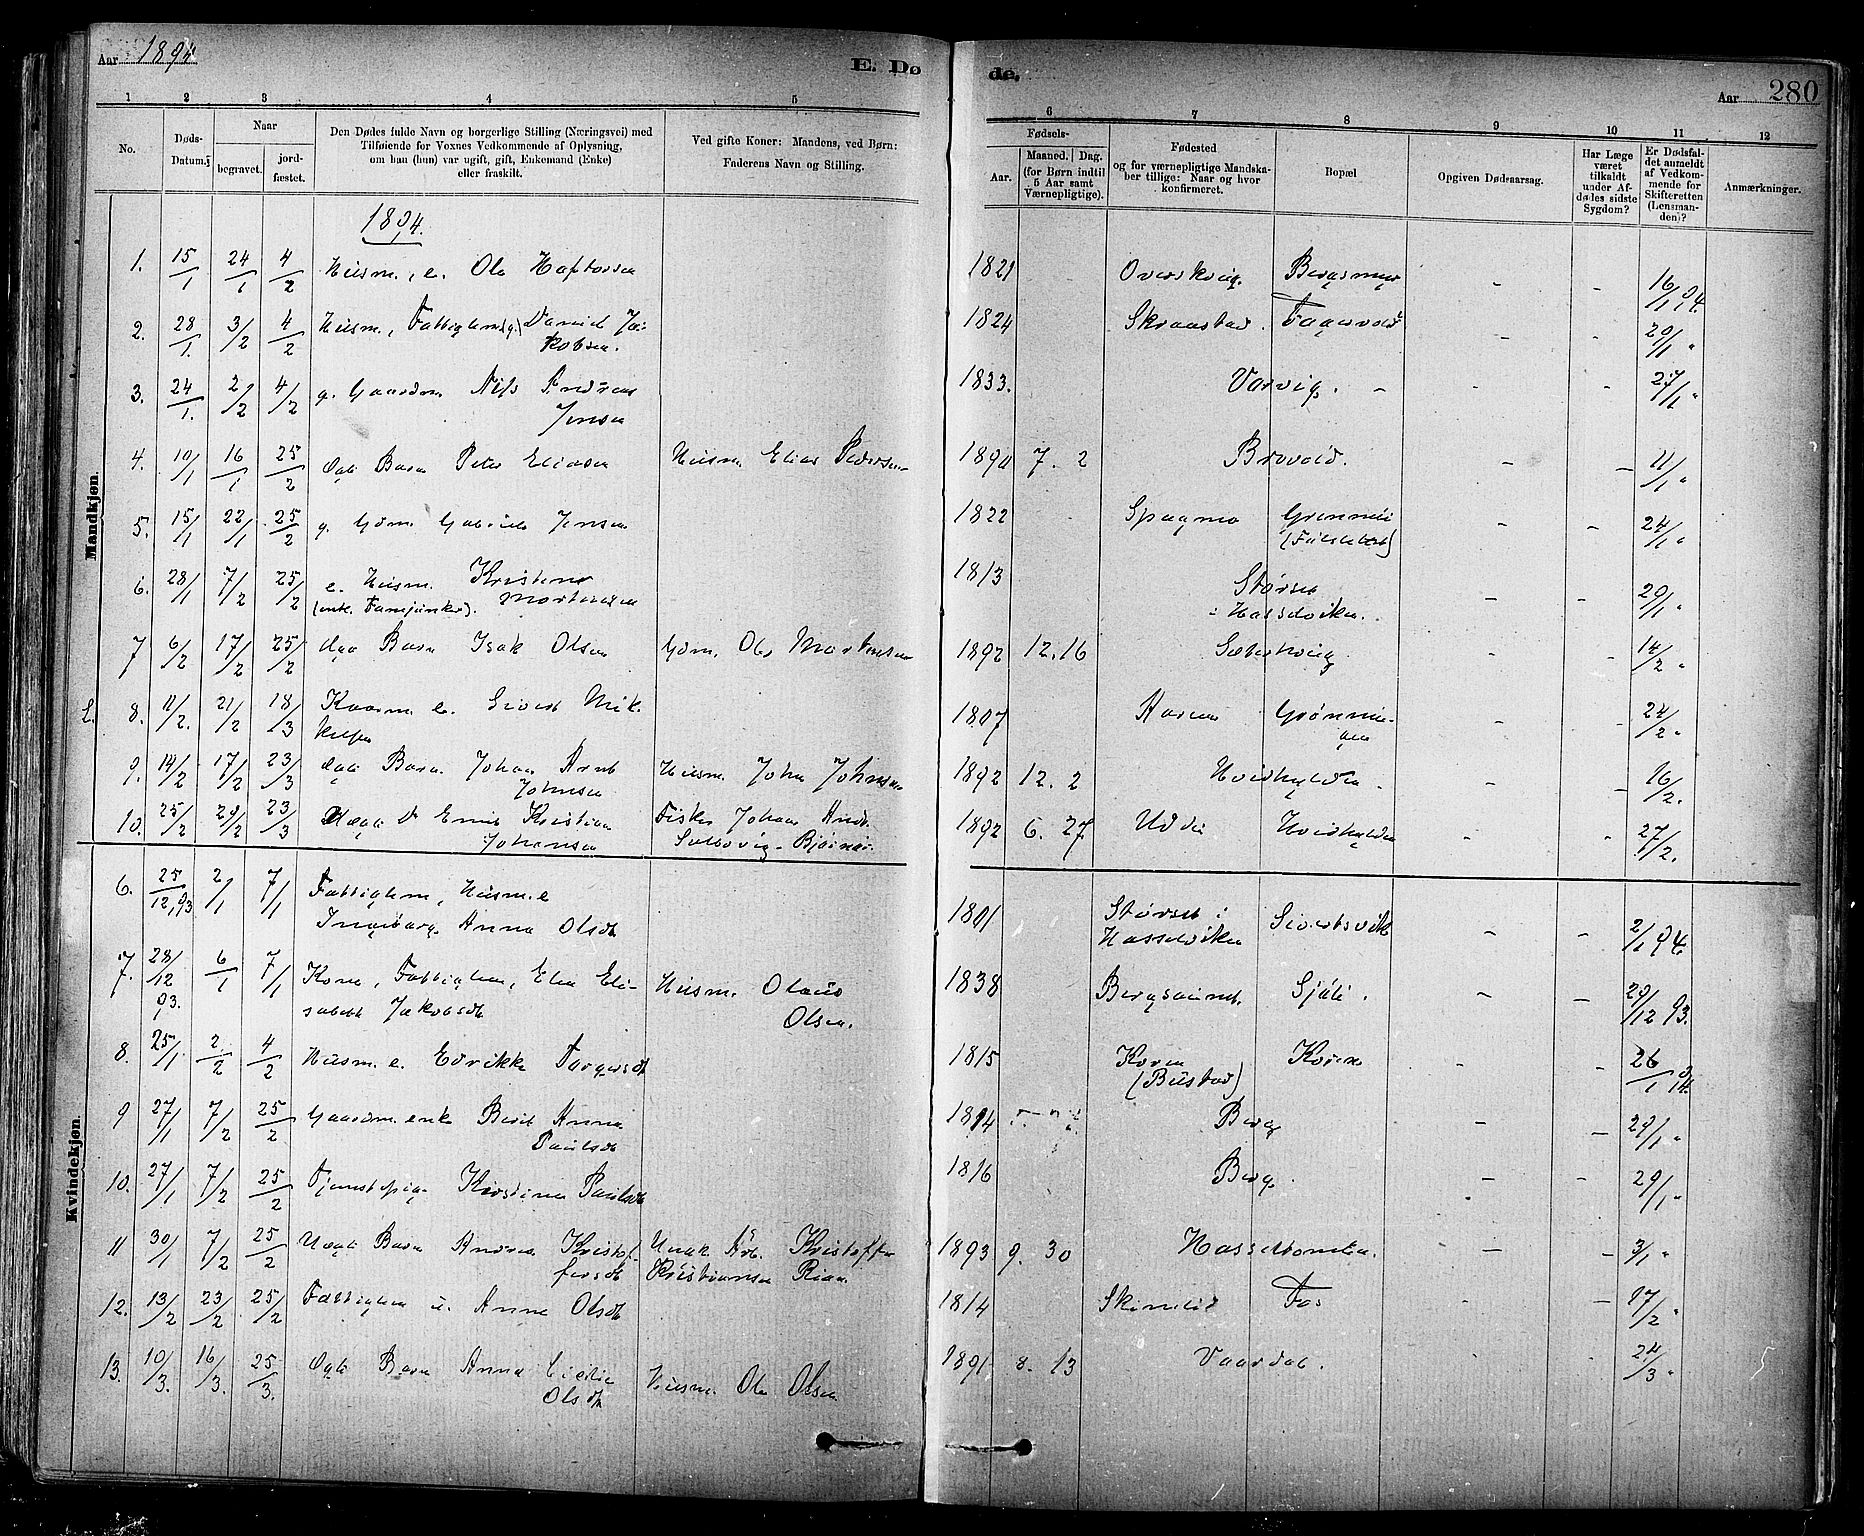 Aar 1894
E. Døde.
Aar 280
1 2 3 4 5 6 7 8 9 10 11 12
No.
Døds-Datum.
Naar
begravet.
jord-fæstet.
Den Dødes fulde Navn og borgerlige Stilling (Næringsvei) med
Tilføiende for Voxnes Vedkommende af Oplysning,
om han (hun) var ugift, gift, Enkemand (Enke)
eller fraskilt.
Ved gifte Koner: Mandens, ved Børn:
Faderens Navn og Stilling.
Fødsels-
Aar.
Maaned. Dag.
(for Børn indtil
5 Aar samt
Værnepligtige).
Fødested
og for værnepligtige Mandska-
ber tillige: Naar og hvor
konfirmeret.
Bopæl
Opgiven Dødsaarsag.
Har Læge
været
tilkaldt
under Af-
dødes sidste
Sygdom?
Er Dødsfal-
det anmeldt
af Vedkom-
mende for
Skifteretten
(Lensman-
den)?
Anmærkninger.
Mandkjøn.
1894.
1. 15/1 24/1 4/2 Husm., e. Ole Haftorsen 1821 Overskvig. Bergsmyr - - 16/1 94.
2. 28/1. 3/2 4/2 Husm., Fattiglem (g.) Daniel Ja-
kobsen. 1824 Skraastad. Fagervold - - 29/1 "
3. 24/1. 2/2 4/2 g. Gaardm. Nils Andreas
Jensen 1833. Varvig. - - - 27/1 "
4. 10/1 16/1 25/2 Ægte Barn Peter Eliasen Husm. Elias Pedersen 1890 7. 2 Brovold. - - 11/1 "
5. 15/1 22/1 25/2 g. Gdm. Gabriel Jensen 1822 Spagmo Grønnli
- - 24/1 "
6. 28/1 7/2 25/2 e. Husm. Kristen
Mortensen
1813 Størset
i Hasselviken. - - 29/1 "
7 6/2 17/2 25/2 Ægte Barn Isak Olsen Gdm. Ole Mortensen 1892 12. 16 - - 14/2 "
L. 8. 11/2. 21/2 18/3 Kaarm. e. Sivert Mik-
kelsen 1807 Haven Grønnin-
gen - - 24/2 "
9. 14/2 17/2 23/3 Ægte Barn Johan Arnt
Johnsen Husm. John Johnsen 1892 12. 2 Hvidhylden. - - 16/2.
10. 25/2 28/2 23/3 Uægte D Emil Kristian
Johansen Fisker Johan Andr.
Solbovig - Bjørnør. 1892 6. 27 Uddu - - 27/2.
Kvindekjøn.
6. 25/12, 93 2/1 7/1 Fattiglem, Husm. e
Ingeborg Anna Olsdt 1801 Størset i
Hasselviken Sivertsvik - - 2/1 94.
7. 28/12 93. 6/1 7/1 Kone, Fattiglem, Elen Eli-
sabeth Jakobsdt Husm. Olaus
Olsen. 1838 Bergsaunet. Sjøli. - - 29/12 93.
8. 25/1 2/2 4/2 Husm. e. Edrikke Torgersdt 1815 Koren
(Bustad) Koren - - 26/1 94.
9 27/1 7/2 25/2 Gaardm. enke Berit Anna
Paulsdt 1814 Berg - - 29/1 "
10. 27/1 7/2 25/2 Tjenestepige Kirstine Paulsdt 1816 Berg. - - 29/1 "
11 30/1 7/2 25/2 Uægte Barn Andrea Kristof-
fersdt Ungk. Arb. Kristoffer
Kristiansen Rian 1893 9. 30 - - 3/1 "
12. 13/2 23/2 25/2 Fattiglem u. Anna Olsdt 1814 Skimelid Fos - - 17/2 "
13. 10/3. 16/3. 25/3. Ægte Barn Anna Cicilie
Olsdt Husm. Ole Olsen 1891 8. 13 Vaardal. - - 24/3 "